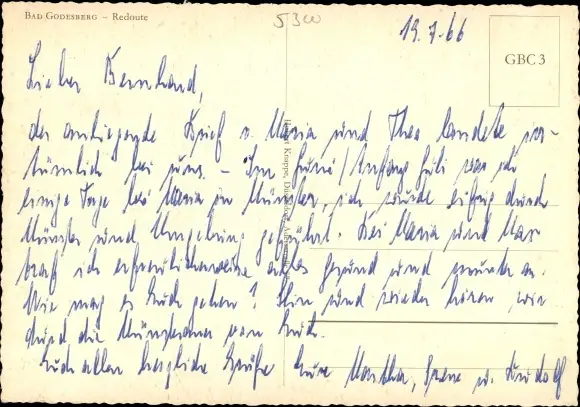 BAD GODESBERG – Redoute
5300
19.7.66
GBC 3
Lieber Bernhard,
der anliegende Brief v. Maria und Theo landete irr-
tümlich bei uns. – Im Juni/Anfang Juli war ich
einige Tage bei Maria in Münster, ich wurde eifrig durch
Münster und Umgebung geführt. Bei Maria und Mar
traf ich erfreulicherweise alles gesund und munter an.
Wie mag es Euch gehen? Hin und wieder hören wir
durch die Münsteraner von Euch.
Euch allen herzliche Grüße Eure Martha, u. Rudolf